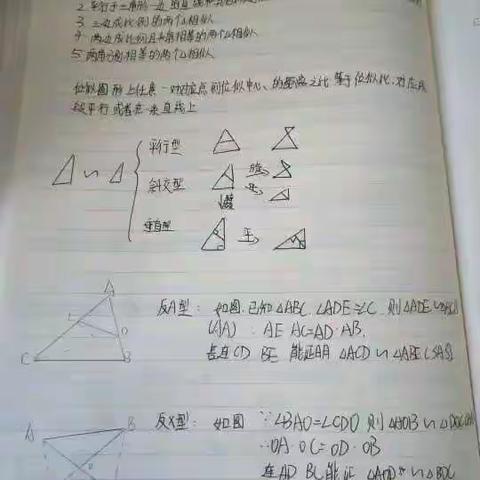 3. 三边成比例的两个△相似
4. 两边成比例且夹角相等的两个△相似
5. 两角分别相等的两个△相似
位似图形上任意一对对应点到位似中心的距离之比等于位似比,对应线
段平行或者在一条直线上
平行型
∽
斜交型
垂直型
A
反A型: 如图,已知△ABC, ∠ADE=∠C, 则△ADE∽△ABC
(AA) ∴ AE·AC=AD·AB,
E D
若连CD BE 能证 △ACD∽△ABE(SAS)
C B
反X型: 如图 ∵∠BAO=∠CDO 则△AOB∽△DOC
A B
∴OA·OC=OD·OB
连AD BC能证 △AOD∽△BOC